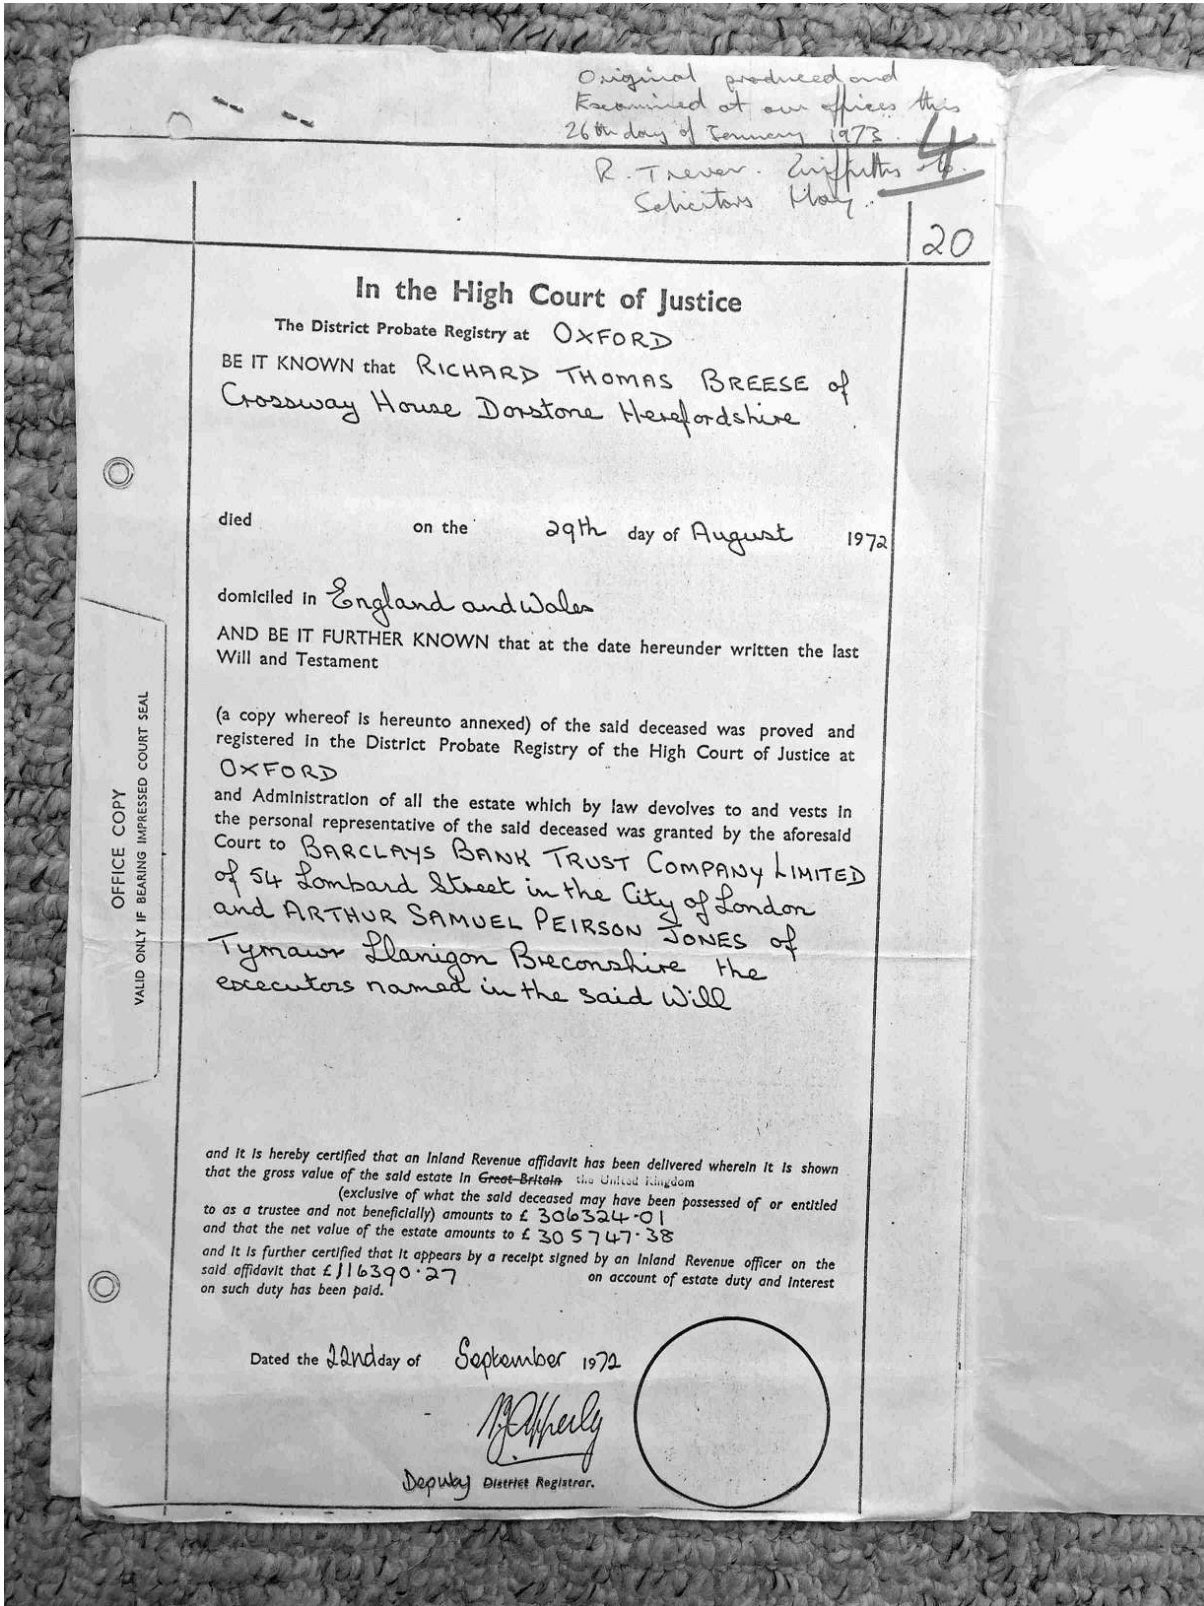 Original produced and
Examined at our offices this
26th day of January 1973.
4
R. Trevor. Griffiths
Solicitors Hay.
20
In the High Court of Justice
The District Probate Registry at OXFORD
BE IT KNOWN that RICHARD THOMAS BREESE of
Crossway House Dorstone Herefordshire
died on the 29th day of August 1972
domiciled in England and Wales
AND BE IT FURTHER KNOWN that at the date hereunder written the last
Will and Testament
(a copy whereof is hereunto annexed) of the said deceased was proved and
registered in the District Probate Registry of the High Court of Justice at
OXFORD
and Administration of all the estate which by law devolves to and vests in
the personal representative of the said deceased was granted by the aforesaid
Court to BARCLAYS BANK TRUST COMPANY LIMITED
of 54 Lombard Street in the City of London
and ARTHUR SAMUEL PEIRSON JONES of
Tymawr Llanigon Breconshire the
executors named in the said Will
OFFICE COPY
VALID ONLY IF BEARING IMPRESSED COURT SEAL
and it is hereby certified that an Inland Revenue affidavit has been delivered wherein it is shown
that the gross value of the said estate in Great Britain the United Kingdom
(exclusive of what the said deceased may have been possessed of or entitled
to as a trustee and not beneficially) amounts to £ 306324.01
and that the net value of the estate amounts to £ 305747.38
and it is further certified that it appears by a receipt signed by an Inland Revenue officer on the
said affidavit that £116390.27 on account of estate duty and interest
on such duty has been paid.
Dated the 22nd day of September 1972
Deputy District Registrar.